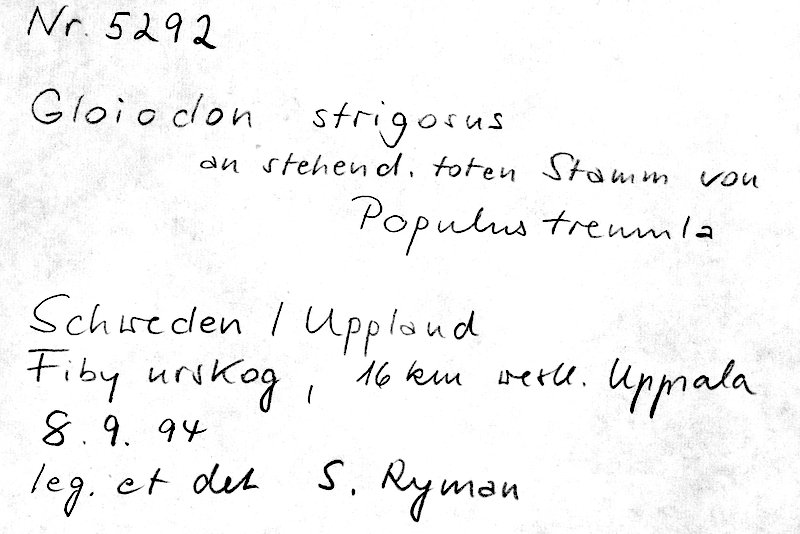 Nr. 5292
Gloiodon strigosus
an stehend. toten Stamm von
Populus tremula
Schweden / Uppland
Fiby urskog, 16 km westl. Uppsala
8. 9. 94
leg. et det S. Ryman